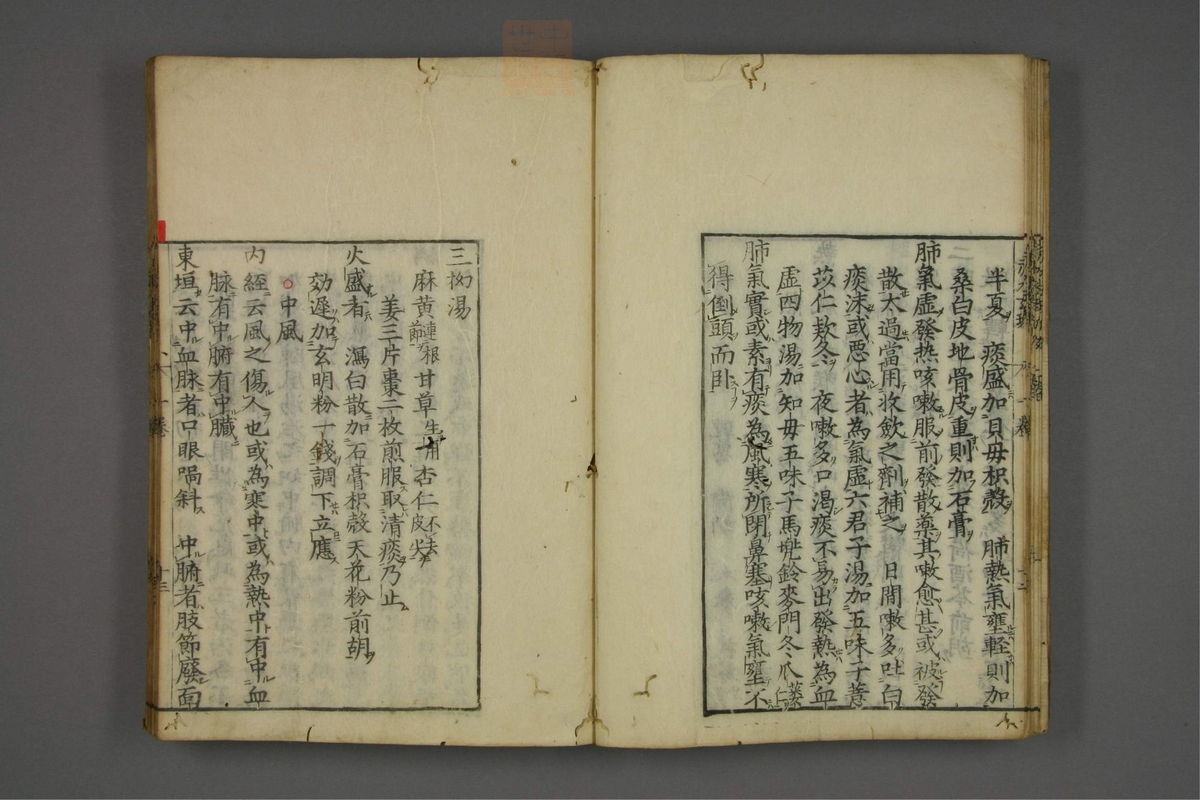 半夏 痰盛加貝母枳殻 肺熱氣壅軽則加
桑白皮地骨皮重則加石膏
肺氣虚發热咳嗽服前發散藥其嗽愈甚或被發
散太過當用收斂之劑補之 日間嗽多吐白
痰沫或悪心者為氣虚六君子湯加五味子薏
苡仁欵冬 夜嗽多口渇痰不易出發熱為血
虚四物湯加知母五味子馬兜鈴麥門冬瓜蔞仁
肺氣實或素有痰為風寒所閉鼻塞咳嗽氣壅不
得倒頭而卧
三拗湯
麻黄連根節甘草生用杏仁不去皮尖
姜三片棗二枚煎服取清痰乃止
火盛者 瀉白散加石膏枳殻天花粉前胡
効遅加玄明粉一錢調下立應
中風
内經云風之傷人也或為寒中或為熱中有中血
脉有中腑有中臓
東垣云中血脉者口眼喎斜 中腑者肢節廢面